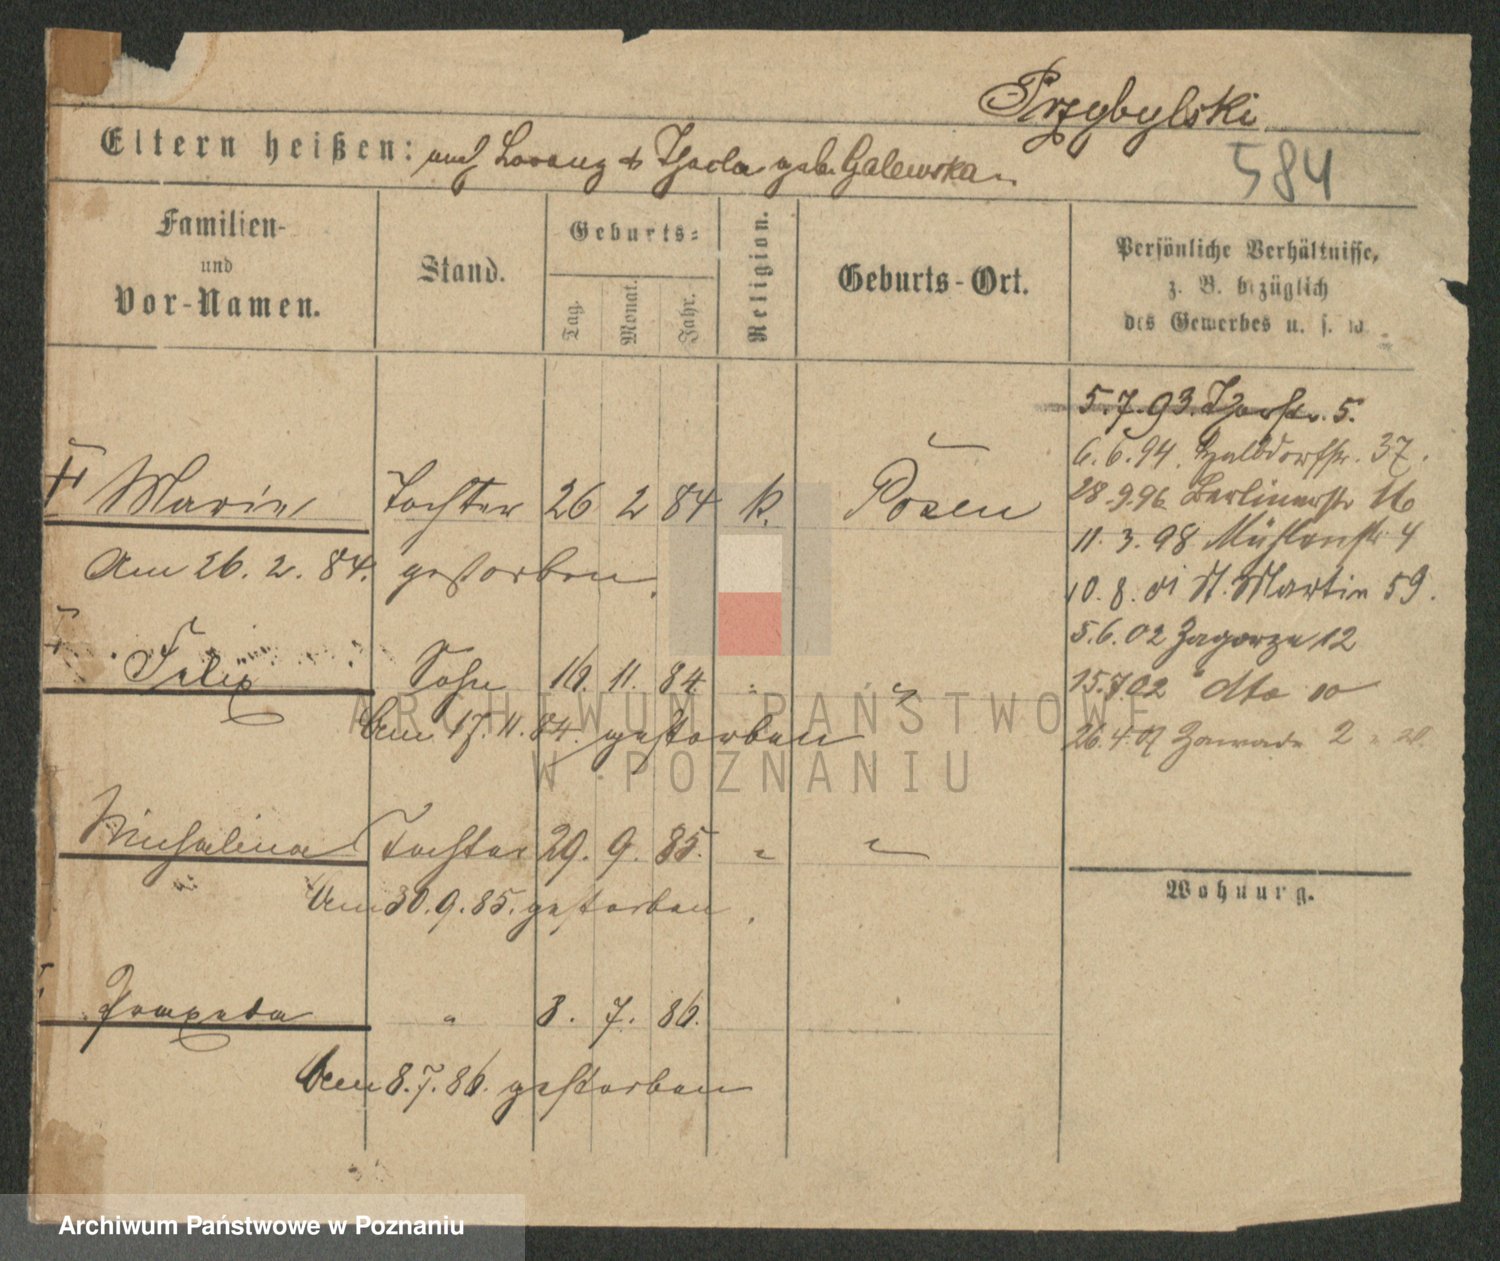 Przybylski
584
Eltern heißen: auch Lorenz & Thecla geb. Galewska
Familien- und Vor-Namen.
Stand.
Geburts-
Tag. Monat. Jahr.
Religion.
Geburts-Ort.
Persönliche Verhältnisse, z. B. bezüglich des Gewerbes u. s. w.
5.7.93. Thorstr. 5.
6.6.94. Halbdorfstr. 37.
28.9.96 Berlinerstr 16
11.3.98 Mühlenstr 4
10.8.01 St. Martin 59.
5.6.02 Zagorze 12
15.7.02 dto 10
26.4.07 Zawade 2
Marie Tochter 26 2 84 k. Posen
Am 26.2.84. gestorben.
Felix Sohn 16. 11. 84. " "
Am 17.11.84. gestorben
Michalina Tochter 29. 9. 85. " "
Am 30.9.85. gestorben.
Praxeda " 8. 7. 86.
Am 8.7.86. gestorben
Wohnung.
ARCHIWUM PAŃSTWOWE
W POZNANIU
Archiwum Państwowe w Poznaniu